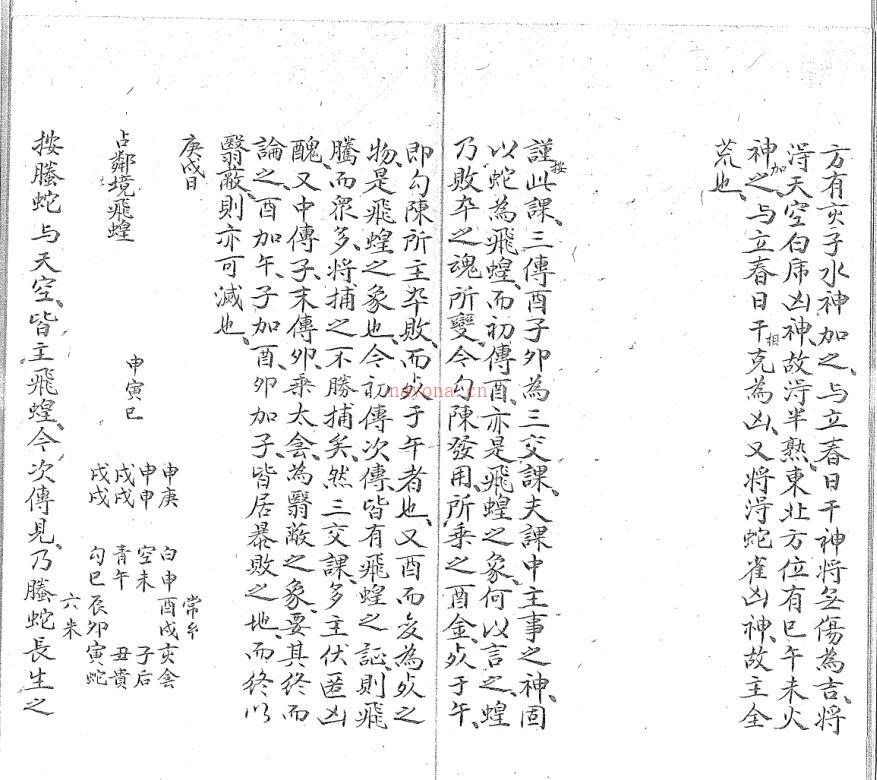 方有亥子水神加之、与立春日干神将無傷為吉、将
淂天空白乕凶神故淂半熟、東北方位有巳午未火
神加之、与立春日干相克為凶、又将淂蛇雀凶神、故主全
荒也、
謹按此課、三傳酉子卯為三交課、夫課中主事之神、固
以蛇為飛蝗、而初傳酉、亦是飛蝗之象、何以言之、蝗
乃敗卒之魂所變、今勾陳發用、所乘之酉金、死于午、
即勾陳所主卒敗、而死于午者也、又酉而为死之
物、是飛蝗之象也、今初傳次傳皆有飛蝗之証、則飛
騰而衆多、将捕之不勝捕矣、然三交課、多主伏匿凶
醜、又中傳子、末傳卯、乗太侌、為翳蔽之象、要其終而
論之、酉加午、子加酉、卯加子、皆居暴敗之地、而終以
翳蔽、則亦可滅也、
庚戌日
占鄰境飛蝗
申寅巳
申庚
申申
戌戌
戌戌
常玄
白申酉戌亥侌
空未　子后
青午　丑貴
勾巳辰卯寅蛇
六朱
按螣蛇与天空、皆主飛蝗、今次傳見、乃螣蛇長生之
nayona.cn